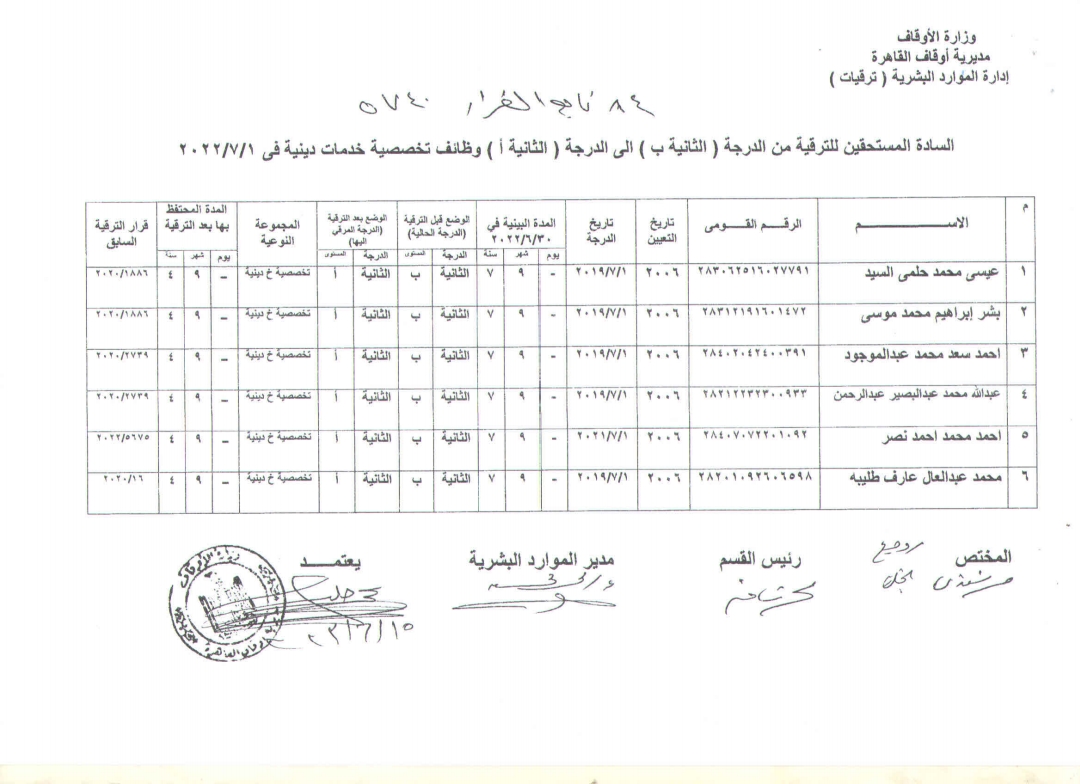 وزارة الأوقاف
مديرية أوقاف القاهرة
إدارة الموارد البشرية ( ترقيات )
٨٤ تابع القرار ٥٧٤٠
السادة المستحقين للترقية من الدرجة ( الثانية ب ) الى الدرجة ( الثانية أ ) وظائف تخصصية خدمات دينية فى ٢٠٢٢/٧/١
م الاســـــــم الرقـــم القـــومى تاريخ التعيين تاريخ الدرجة المدة البينية في ٢٠٢٢/٦/٣٠ الوضع قبل الترقية (الدرجة الحالية) الوضع بعد الترقية (الدرجة المرقي اليها) المجموعة النوعية المدة المحتفظ بها بعد الترقية قرار الترقية السابق
يوم شهر سنة الدرجة المستوى الدرجة المستوى يوم شهر سنة
١ عيسى محمد حلمى السيد ٢٨٣٠٦٢٥١٦٠٢٧٧٩١ ٢٠٠٦ ٢٠١٩/٧/١ - ٩ ٧ الثانية ب الثانية أ تخصصية خ دينية - ٩ ٤ ٢٠٢٠/١٨٨٦
٢ بشر إبراهيم محمد موسى ٢٨٣١٢١٩١٦٠١٤٧٢ ٢٠٠٦ ٢٠١٩/٧/١ - ٩ ٧ الثانية ب الثانية أ تخصصية خ دينية - ٩ ٤ ٢٠٢٠/١٨٨٦
٣ احمد سعد محمد عبدالموجود ٢٨٤٠٢٠٤٢٤٠٠٣٩١ ٢٠٠٦ ٢٠١٩/٧/١ - ٩ ٧ الثانية ب الثانية أ تخصصية خ دينية - ٩ ٤ ٢٠٢٠/٢٧٣٩
٤ عبدالله محمد عبدالبصير عبدالرحمن ٢٨٢١٢٢٣٢٣٠٠٩٣٣ ٢٠٠٦ ٢٠١٩/٧/١ - ٩ ٧ الثانية ب الثانية أ تخصصية خ دينية - ٩ ٤ ٢٠٢٠/٢٧٣٩
٥ احمد محمد احمد نصر ٢٨٤٠٧٠٧٢٢٠١٠٩٢ ٢٠٠٦ ٢٠٢١/٧/١ - ٩ ٧ الثانية ب الثانية أ تخصصية خ دينية - ٩ ٤ ٢٠٢٢/٥٦٧٥
٦ محمد عبدالعال عارف طليبه ٢٨٢٠١٠٩٢٦٠٦٥٩٨ ٢٠٠٦ ٢٠١٩/٧/١ - ٩ ٧ الثانية ب الثانية أ تخصصية خ دينية - ٩ ٤ ٢٠٢٠/١٦
المختص رئيس القسم مدير الموارد البشرية يعتمـــد
وزارة الأوقاف